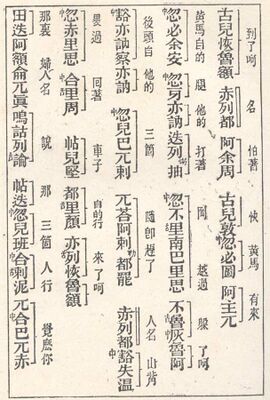 到了呵 名 怕著 快黃馬 有來
古兒恢魯額 赤列都 阿余周 古兒敦忽必圖 阿主兀
黃馬自的 腿他的 打著 岡 越過 躲了呵
中忽必余安 忽牙亦訥 迭列抽 中忽不里南巴里思 不魯灰魯阿
後頭自 他的 三箇 隨即趕了 人名 山觜
豁亦訥察亦訥 中忽兒巴兀剌 兀荅阿剌都罷 赤列都豁失溫
過 回著 車子自的行 來了呵
忽赤里思 中合里周 帖兒堅都里顏 亦列恢魯額
那裏 婦人名 說 那三箇人行 覺麼你
田迭阿額侖兀真 嗚詁列論 帖迭中忽兒班 兀中合巴兀赤